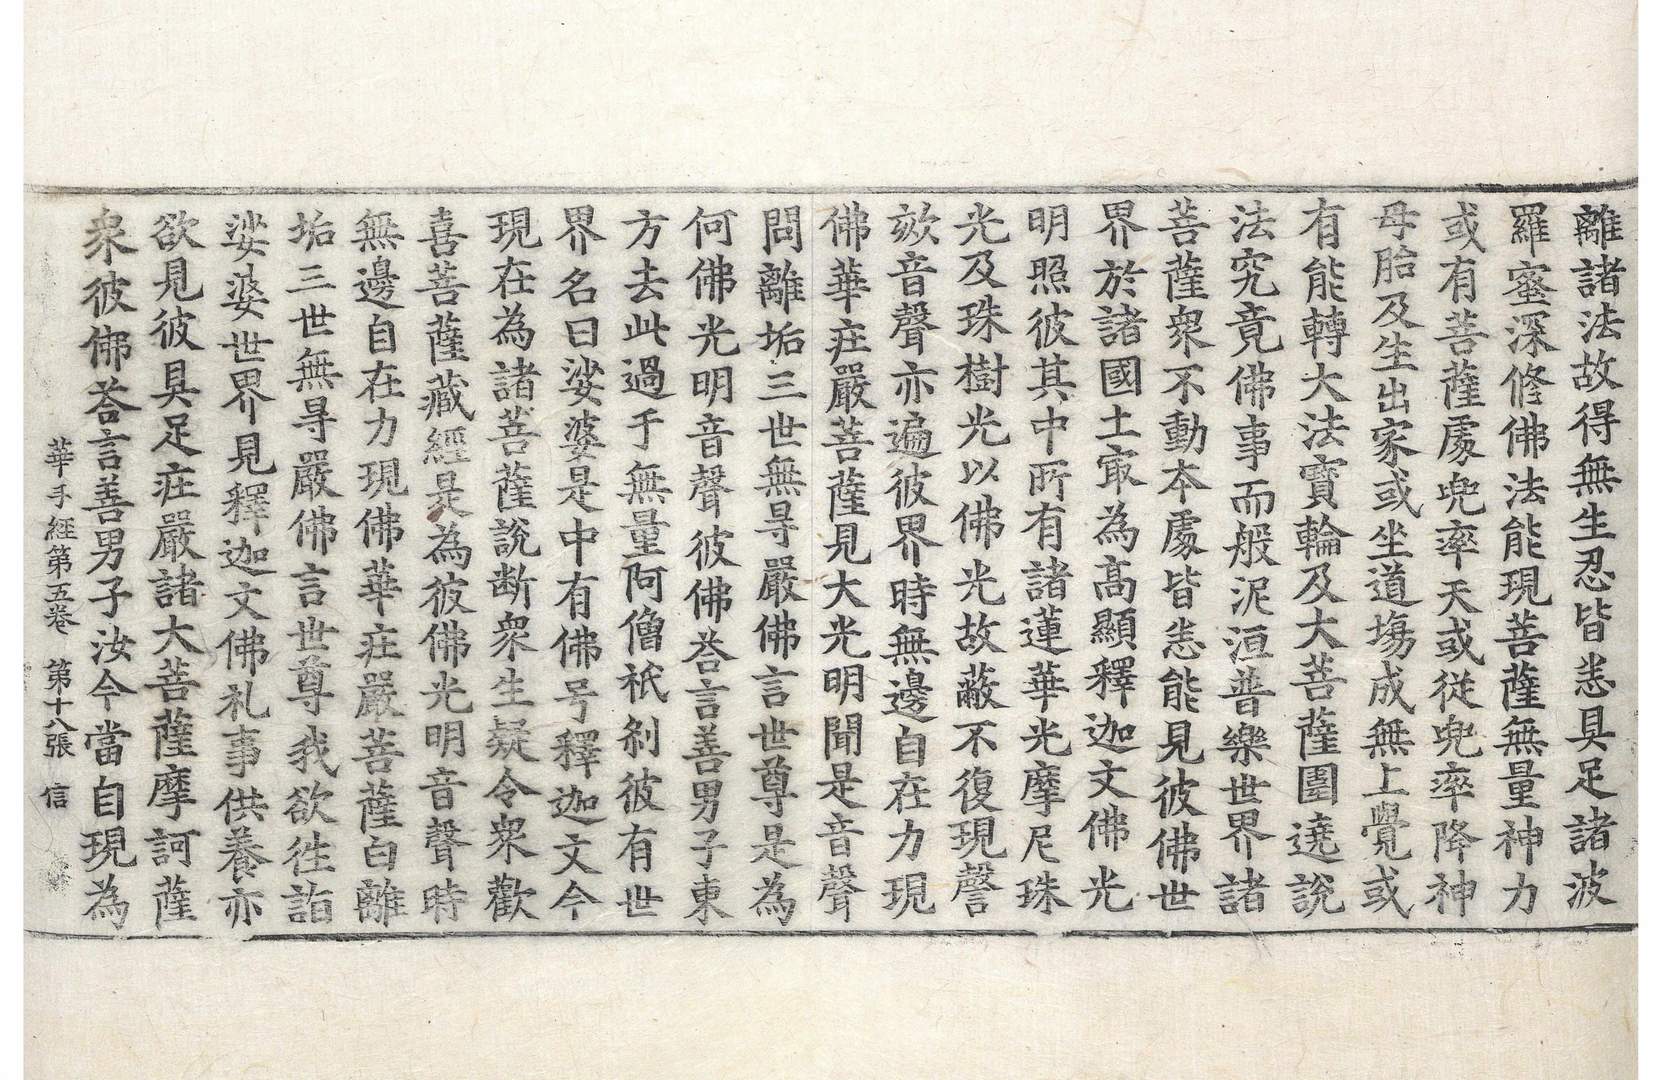 離諸法故得無生忍皆悉具足諸波
羅蜜深修佛法能現菩薩無量神力
或有菩薩處兜率天或從兜率降神
母胎及生出家或坐道塲成無上覺或
有能轉大法寶輪及大菩薩圍遶說
法究竟佛事而般泥洹普樂世界諸
菩薩衆不動本處皆悉能見彼佛世
界於諸國土㝡為高顯釋迦文佛光
明照彼其中所有諸蓮華光摩尼珠
光及珠樹光以佛光故蔽不復現謦
欬音聲亦遍彼界時無邊自在力現
佛華莊嚴菩薩見大光明聞是音聲
問離垢三世無㝵嚴佛言世尊是為
何佛光明音聲彼佛荅言善男子東
方去此過于無量阿僧祇刹彼有世
界名曰娑婆是中有佛号釋迦文今
現在為諸菩薩說断衆生疑令衆歡
喜菩薩藏經是為彼佛光明音聲時
無邊自在力現佛華莊嚴菩薩白離
垢三世無㝵嚴佛言世尊我欲往詣
娑婆世界見釋迦文佛礼事供養亦
欲見彼具足莊嚴諸大菩薩摩訶薩
衆彼佛荅言善男子汝今當自現為
華手經第五卷 第十八張 信